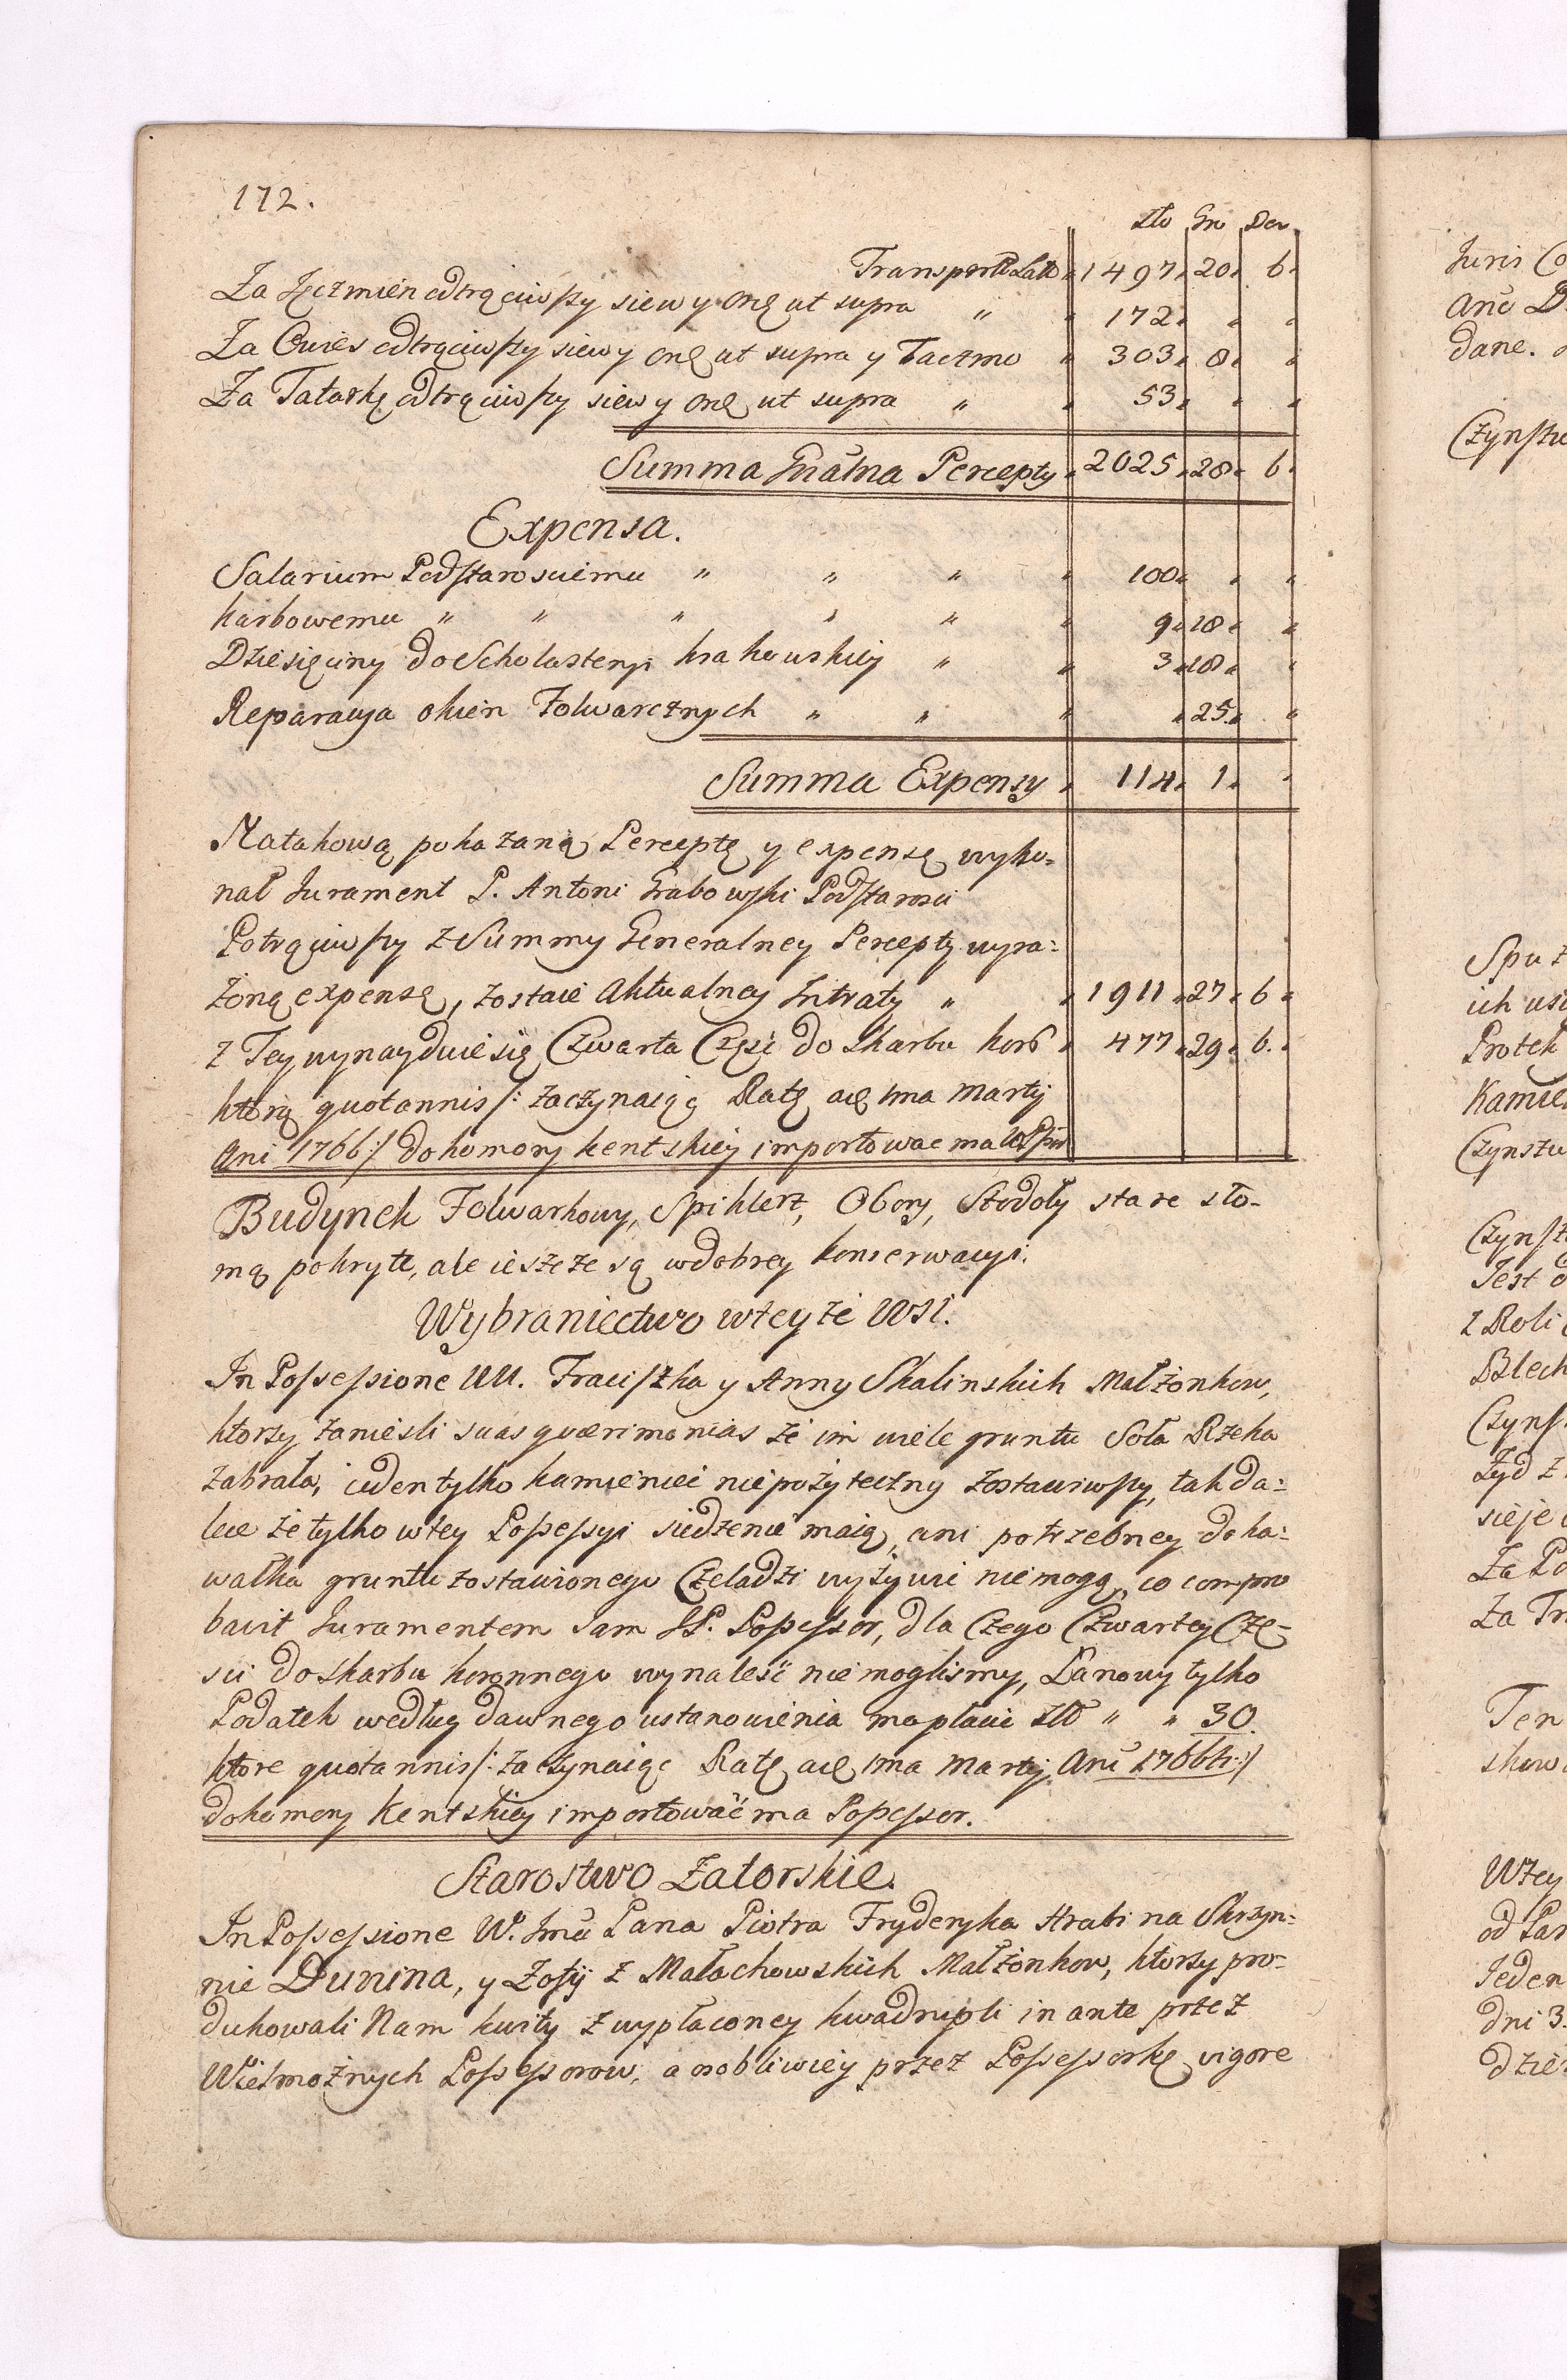 172.
Zło Gro Den
Transport Lat. 1497 20 6
Za Jęczmien odtrąciwszy siew y Ord. ut supra 172
Za Owies odtrąciwszy siew y Ord. ut supra y Taczmo 303 8
Za Tatarkę odtrąciwszy siew y Ord. ut supra 53
Summa Grālna Percepty 2025 28 6
Expensa.
Salarium Podstarosciemu 100
karbowemu 9 18
Dziesięciny do Scholasteryi krakowskiey 3 18
Reparacya okien Folwarcznych 25
Summa Expensy 114 1
Natakową pokazaną Perceptę y expensę wyko=
nał Jurament P. Antoni Grabowski Podstarosci
Potrąciwszy z Summy Generalney Percepty wyra=
żoną expensę, zostaie Aktualney Intraty 1911 27 6
z Tey wynayduie się Czwarta Częśc do Skarbu kor 477 29 6.
ktorą quotannis /: zaczynaiąc Ratę a 1ma Martij
Ani 1766 :/ do komory kentskiey importowac ma
Budynek Folwarkowy, Spiklerz, Obory, Stodoły stare sło-
mą pokryte, ale ieszcze są w dobrey konserwacyi.
Wybraniectwo wteyże Wsi.
In Possessione UU. Franciszka y Anny Skalinskich Małżonkow,
ktorzy zaniesli suas quærimonias że im wiele gruntu Soła Rzeka
zabrała, ieden tylko kamieniec niepożyteczny zostawiwszy, tak da=
lece że tylko wtey Possessyi siedzenie maią, ani potrzebney do ka=
wałka gruntu zostawionego Czeladzi wyżywic niemogą, co compro
bavit Juramentem sam JP. Possessor, dla Czego Czwartey Czę-
sci do Skarbu koronnego wynalesć niemoglismy, Łanowy tylko
Podatek według dawnego ustanowienia ma płacic zło 30.
ktore quotannis /: zaczynaiąc Ratę a 1ma Martij Ani 1766ti :/
do komory Kentskiey importować ma Possessor.
Starostwo Zatorskie.
In Possessione W. Jmci Pana Piotra Fryderyka Hrabi na Skrzyn=
nie Dunina, y Zofij z Małachowskich Małżonkow, ktorzy pro=
dukowali Nam kwity z wypłaconey kwadrupli in ante przez
Wielmożnych Possessorow, a osobliwiey przez Possessorkę vigore